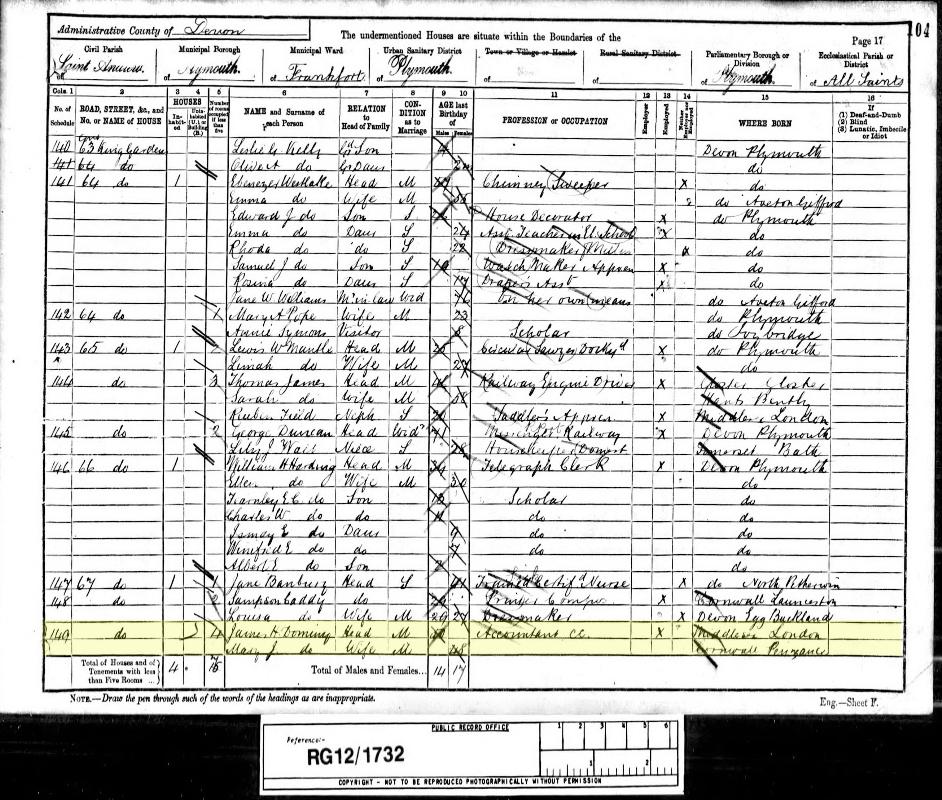 Administrative County of Devon
The undermentioned Houses are situate within the Boundaries of the
104
Page 17
Civil Parish
Municipal Borough
Municipal Ward
Urban Sanitary District
Town or Village or Hamlet
Rural Sanitary District
Parliamentary Borough or Division
Ecclesiastical Parish or District
of Saint Andrew
of Plymouth
of Frankfort
of Plymouth
of
of
of Plymouth
of All Saints
Cols. 1 2 3 4 5 6 7 8 9 10 11 12 13 14 15 16
No. of Schedule
ROAD, STREET, &c., and No. or NAME of HOUSE
HOUSES
In-habited
Uninhabited (U.) or Building (B.)
Number of rooms occupied if less than five
NAME and Surname of each Person
RELATION to Head of Family
CONDITION as to Marriage
AGE last Birthday of
Males Females
PROFESSION or OCCUPATION
Employer
Employed
Neither
WHERE BORN
If (1) Deaf-and-Dumb (2) Blind (3) Lunatic, Imbecile or Idiot
140 63 King Gardens Leslie G Kelly Gd Son Devon Plymouth
141 64 do Olive A do Gr Daur do
141 64 do 1 Ebenezer Westlake Head M Chimney Sweeper X do
Emma do Wife M do Aveton Gifford
Edward J do Son S House Decorator X do Plymouth
Emma do Daur S 24 Asst Teacher in El School X do
Rhoda do do S 22 Dressmaker X do
Samuel J do Son S Watch Maker Appren X do
Rosina do Daur S 17 Drapers Asst X do
Jane W Williams M in law Wid 76 On her own means do Aveton Gifford
142 64 do 1 Mary A Pope Wife M 23 do Plymouth
Annie Symons Visitor 8 Scholar do Ivybridge
143 65 do 1 Lewis W Mantle Head M Sawyer Dockyd X do Plymouth
Wife M 27 do
144 do 3 Thomas James Head M Railway Engine Driver X Gloster Gloster
Sarah do Wife M 38 Hants
Reuben Field Neph S Saddler's Appren X Middlesx London
145 do 2 George Duncan Head Widr 71 Messenger Railway X Devon Plymouth
Niece S 28 Housekeeper Domest Somerset Bath
146 66 do 1 William H Harding Head M 34 Telegraph Clerk X Devon Plymouth
Ellen do Wife M 30 do
Fearnley E C do Son Scholar do
Charles W do do 11 do do
Ismay E do Daur 9 do do
Winifred E do do 7 do do
Albert E do Son do
147 67 do 1 Jane Banbury Head S 41 Trained Certifd Nurse X do North Petherwin
148 do Sampson Gaddy do Printer Compos X Cornwall Launceston
Louisa do Wife M 27 Dressmaker X Devon Egg Buckland
149 do 4 James H Dominy Head M Accountant X Middlesex London
Mary J do Wife M 48 Cornwall Penzance
Total of Houses and of Tenements with less than Five Rooms
4
Total of Males and Females... 14 17
NOTE.—Draw the pen through such of the words of the headings as are inappropriate.
Eng.—Sheet F.
PUBLIC RECORD OFFICE
Reference:-
RG12/1732
1 2 3 4 5 6
1 2
COPYRIGHT - NOT TO BE REPRODUCED PHOTOGRAPHICALLY WITHOUT PERMISSION